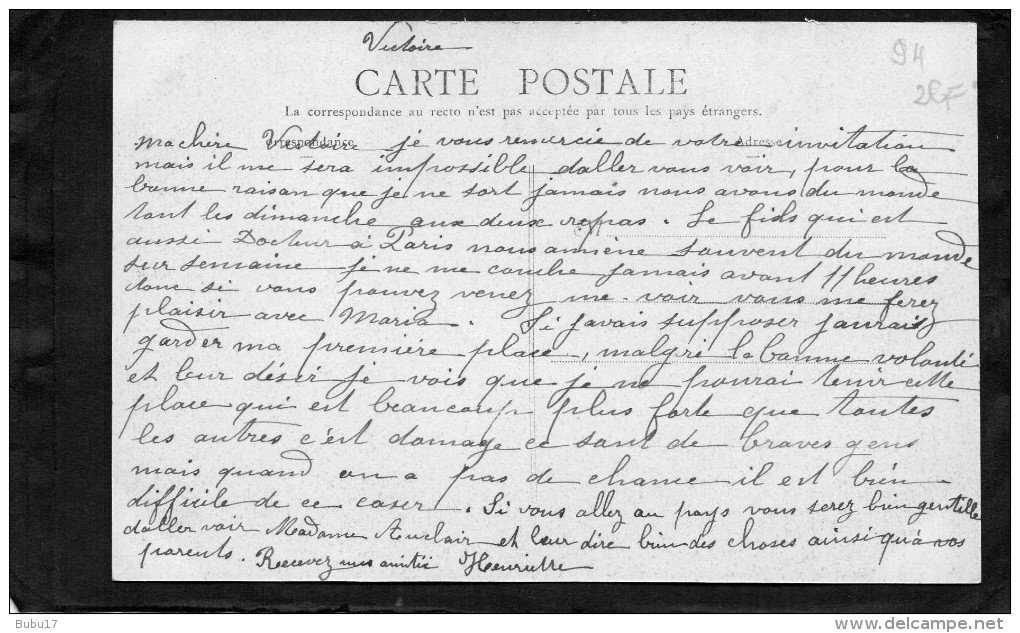 Victoire
94
CARTE POSTALE
La correspondance au recto n'est pas acceptée par tous les pays étrangers.
Correspondance
Adresse
ma chère Victoire je vous remercie de votre invitation
mais il me sera impossible daller vous voir, pour la
bonne raison que je ne sort jamais nous avons du monde
tout les dimanche aux deux repas. Le fids qui est
aussi Docteur à Paris nous amiène souvent du monde
sur semaine je ne me couche jamais avant 11 heures
donc si vous pouvez venez me voir vous me ferez
plaisir avec Maria. Si javais supposer jaurais
garder ma première place, malgré la bonne volonté
et leur désir je vois que je ne pourai tenir cette
place qui est beaucoup plus forte que toutes
les autres c'est domage ce sont de braves gens
mais quand on a pas de chance il est bien
difficile de ce caser. Si vous allez au pays vous serez bien gentille
daller voir Madame Auclair et leur dire bien des choses ainsi qu'à vos
parents. Recevez mes amitié Henriette
Bubu17
http://www.delcampe.net